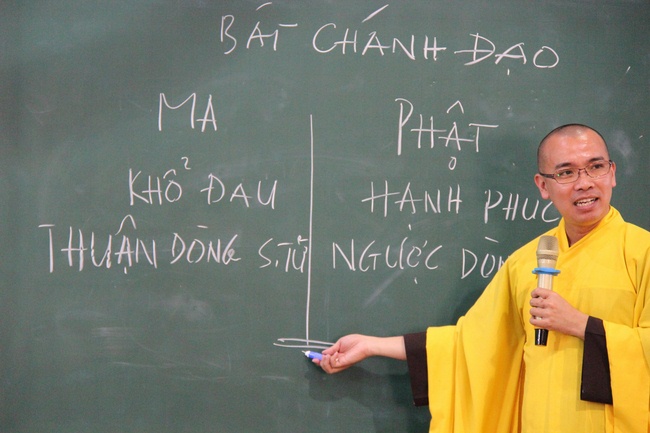 BÁT CHÁNH ĐẠO
MA
PHẬT
KHỔ ĐAU
HẠNH PHÚC
THUẬN DÒNG S.TỬ
NGƯỢC DÒN